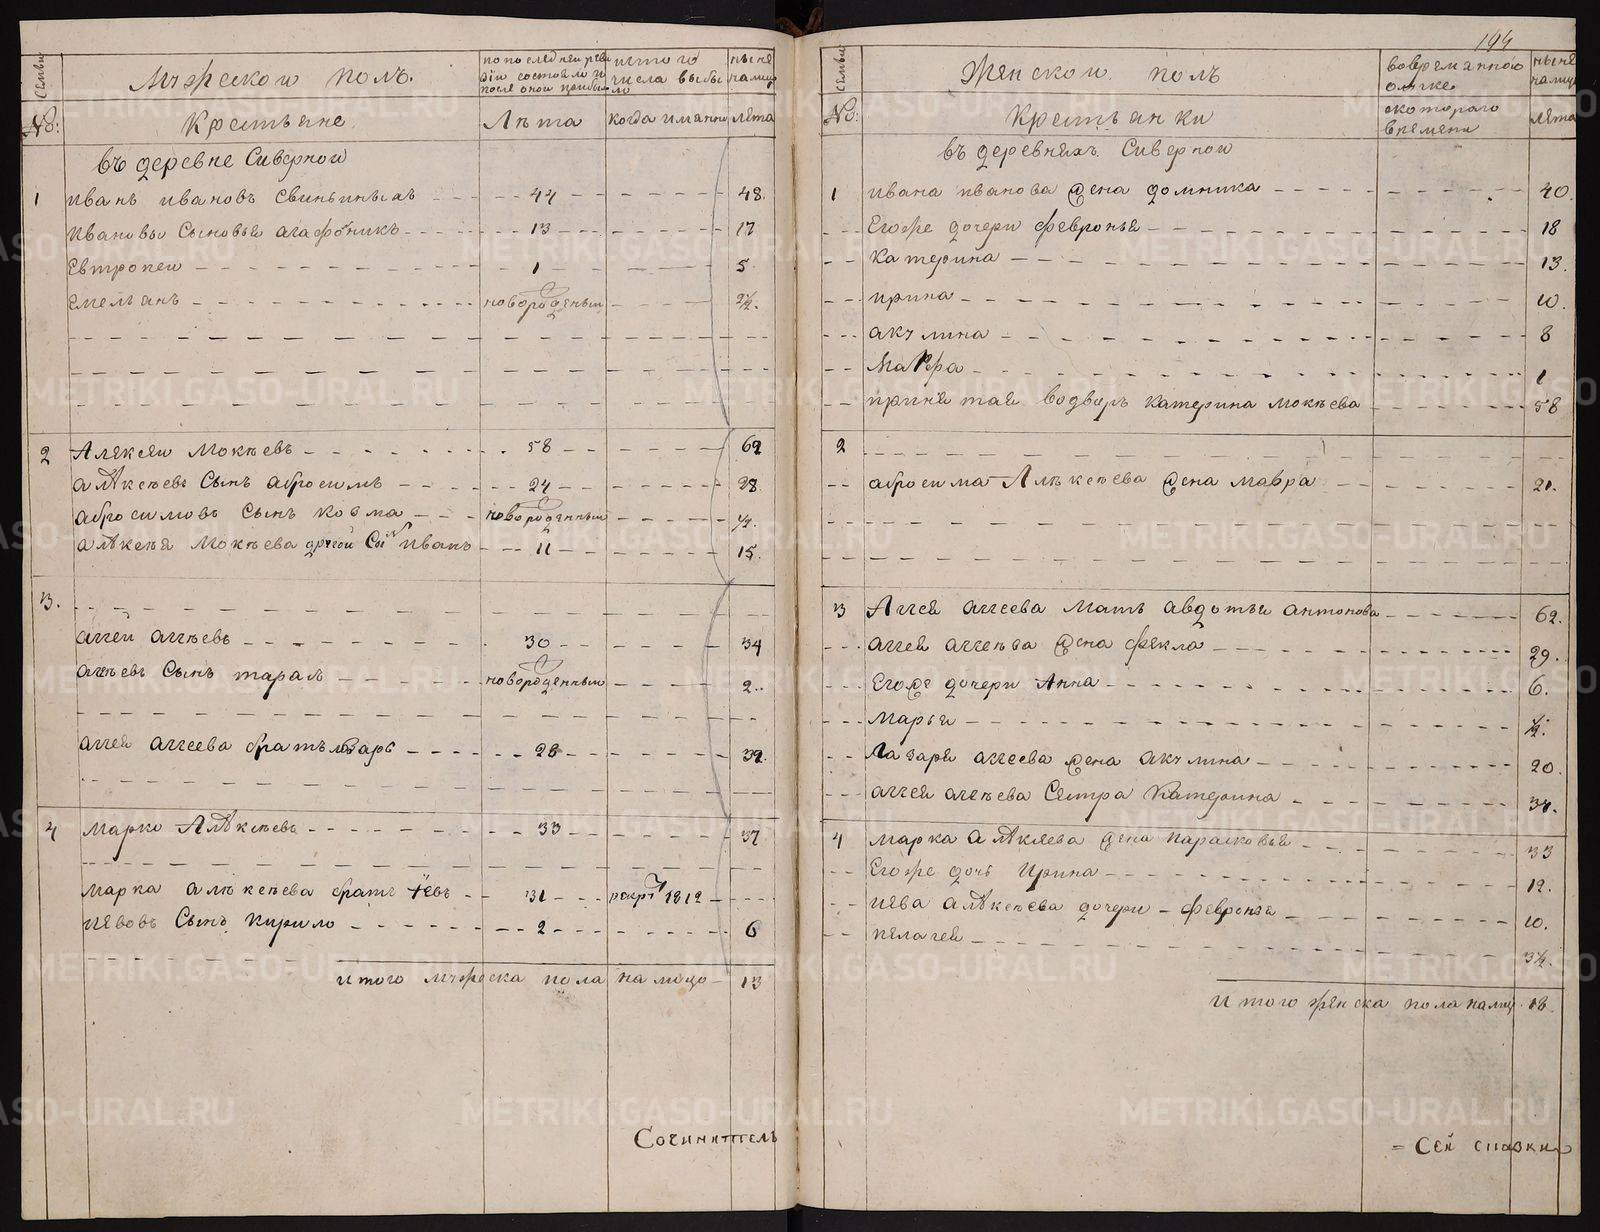 семьи
Мужескои полъ.
по последнеи реви
зiи состояло и
после онои прибы
ло
ис того
числа выбы
ло
ныне
налицо
№:
Крестьяне
Лѣта
когда имянно
лета
въ деревне Сиверной
1 иванъ ивановъ Свиньиныхъ 44 48.
ивановы Сыновья агафоникъ 13 17
Евтропеи 1 5
Емельянъ новорожденыи 2½.
2 Алексеи Мокѣевъ 58 62
алѣксѣевъ Сынъ абросимъ 24 28.
абросимовъ Сынъ козма новорожденныи ½.
алѣксѣя Мокѣева другой Сынъ иванъ 11 15.
3.
аггей аггѣевъ 30 34
агѣевъ Сынъ тарасъ новорожденныи 2.
аггея аггеева братъ лазарь 28 32.
4 марко Алѣксѣевъ 33 37
марка алѣксѣева братъ iевъ 31 рекрт 1812
иевовъ Сынъ Кирило 2 6
итого мужеска пола налицо 13
Сочинитель
194
семьи
Женскои полъ
вовремянной
отлучке
ныне
налицо
№:
Крестьянки
скотораго
времени
лета
въ деревняхъ Сиверной
1 ивана иванова жена домника 40.
Егоже дочери февронья 18
катерина 13.
ирина 10.
акулина 8
Марфа 1
принятая водворъ катерина мокѣева 58
2
абросима Алѣксѣева жена мавра 21.
3 Аггея аггеева мать авдотьи антонова 62.
аггея аггеева жена фекла 29.
Егоже дочери Анна 6.
марьи ½.
Лазаря аггеева жена акулина 20.
аггея агѣева Сестра Катерина 34.
4 марка алѣксеева жена парасковья 33
Егоже дочь Ирина 12.
иева алѣксѣева дочери февронья 10.
пелагея 3½.
итого женска пола налиц. 18.
= Сей сказки
METRIKI.GASO-URAL.RU
METRIKI.GASO-URAL.RU
METRIKI.GASO-URAL.RU
METRIKI.GASO-URAL.RU
METRIKI.GASO-URAL.RU
METRIKI.GASO-URAL.RU
METRIKI.GASO-URAL.RU
METRIKI.GASO-URAL.RU